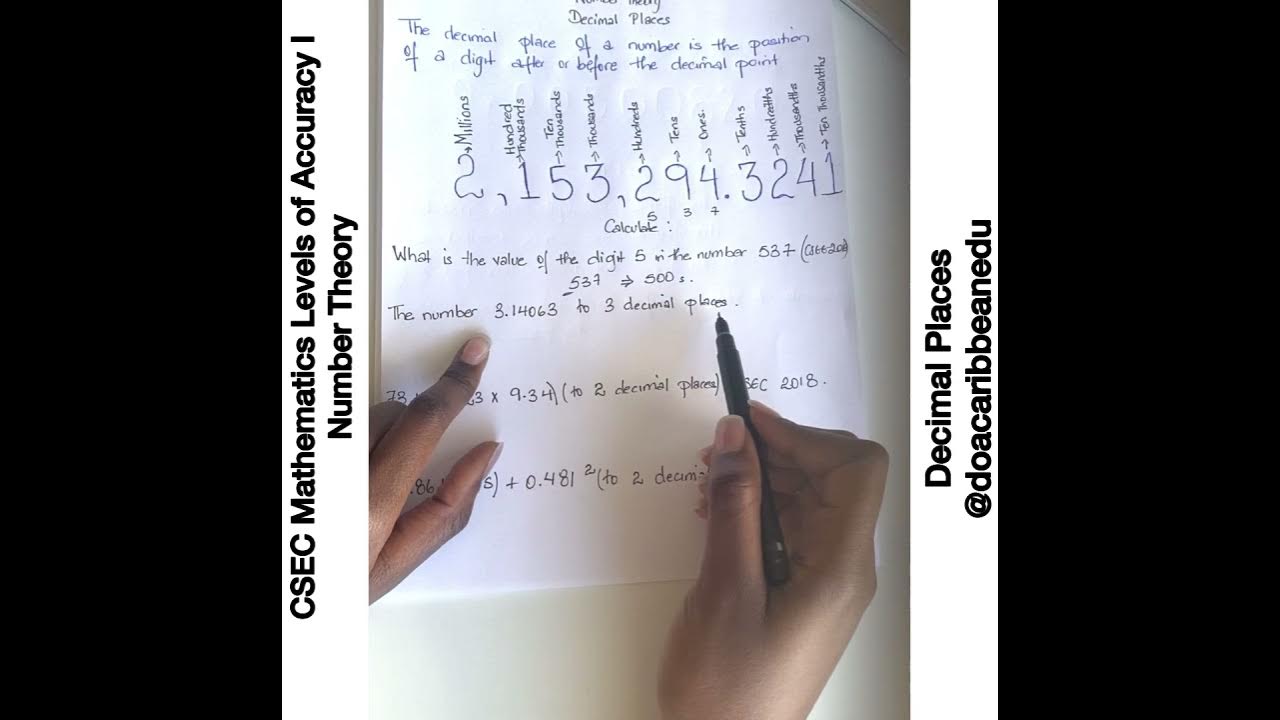 CSEC Mathematics Levels of Accuracy I
Number Theory
Number Theory
Decimal Places
The decimal place of a number is the position
of a digit after or before the decimal point
Millions
Hundred Thousands
Ten Thousands
Thousands
Hundreds
Tens
Ones.
Tenths
Hundredths
Thousandths
Ten Thousandths
2,153,294.3241
5 3 7
Calculate :
What is the value of the digit 5 in the number 537
537 ⇒ 500s.
The number 3.14063 to 3 decimal places.
78 23 x 9.34) (to 2 decimal places) SEC 2018.
.86 s) + 0.481 ² (to 2 decim
Decimal Places
@doacaribbeanedu